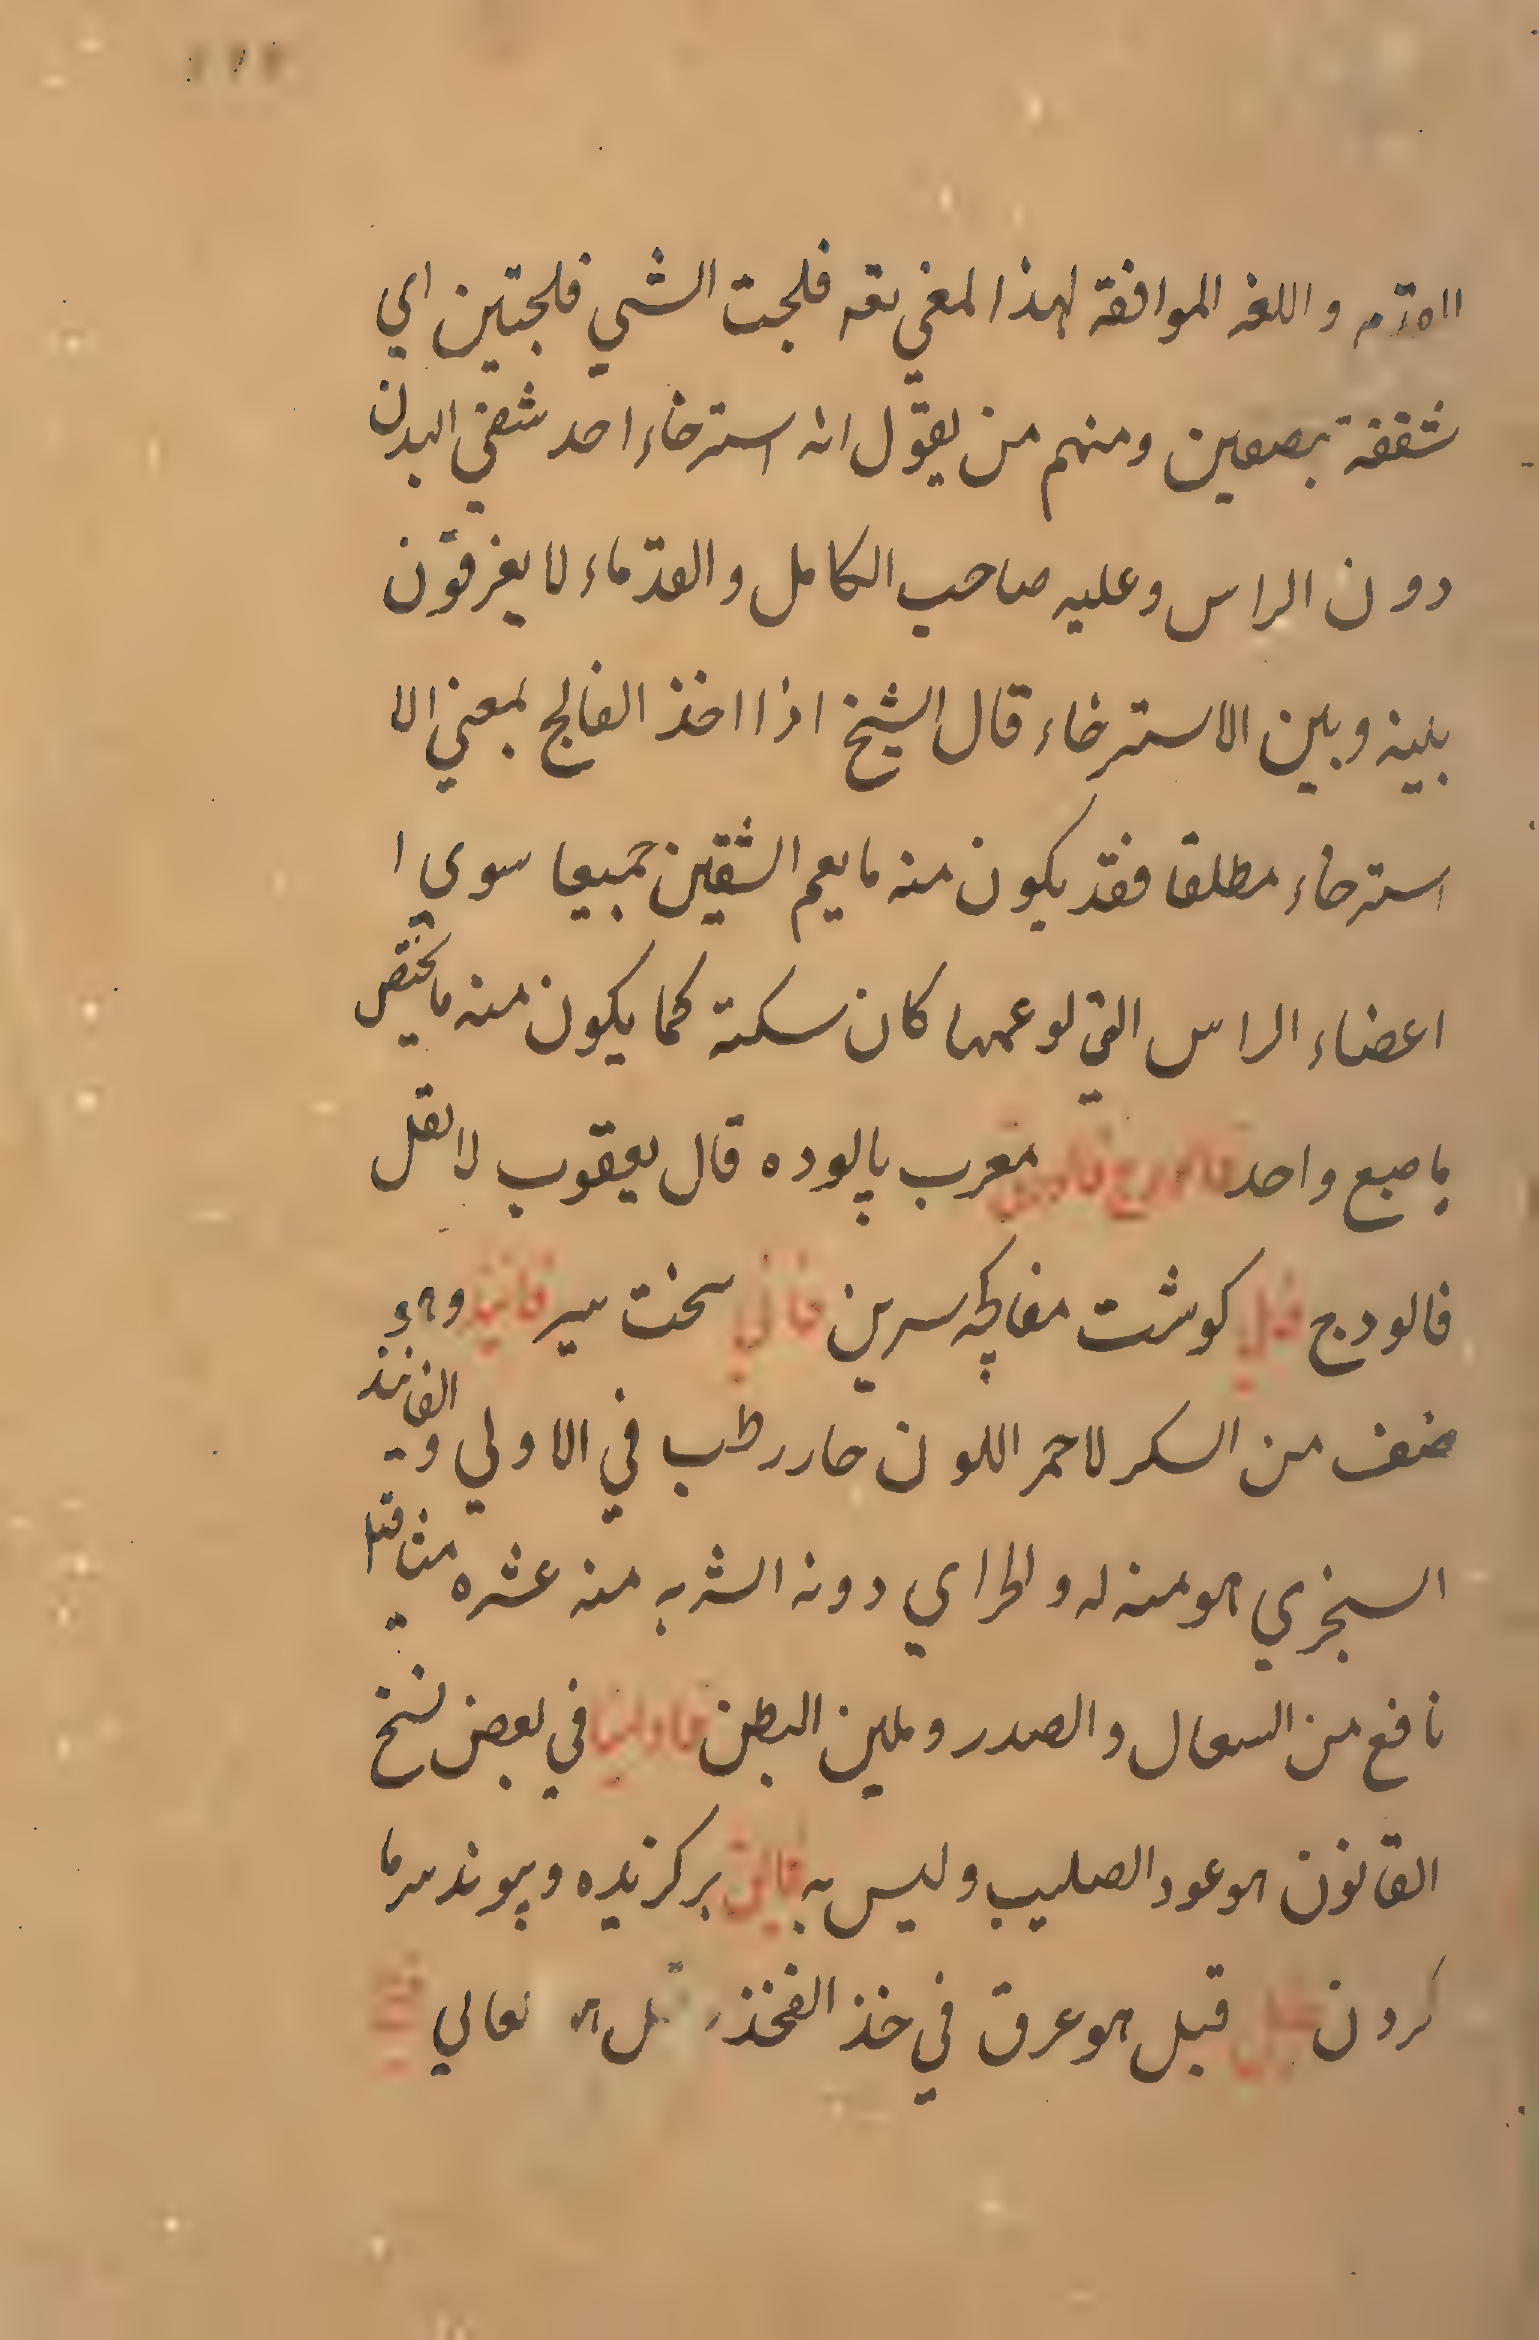 واللغه الموافقة لهذا لمغي بقه فلجت الشي فلجتين اي
شققة بصفين ومنهم من يقول انه استرخاء احد شقي البدن
دون الراس وعليه صاحب الكامل والقدماء لا يفرقون
بلينه وبين الاسترخاء قال الشيخ اذا اخذ الفالج بمعني الا
استرخاء مطلقا فقد يكون منه ما يعم الشقين جميعا سوى ا
اعضاء الراس التي لو عمها كان سكتة كما يكون منه ما يختص
باصبع واحد فالودج معرب پالوده قال يعقوب لا تقل
فالودج كوشت مفاكچه سرين سخت سير فانيذ وهو
صنف من السكر لاحمر اللون حار رطب في الاولي والفانيذ
السنجزي هو منه له والحزاي دونه الشربه منه عشره مثاقيل
نافع من السعال والصدر وملين البطن فاوانيا في بعض نسخ
القانون هو عود الصليب وليس به فايق بركزيده وپيوند سرما
كردن قبل هو عرق في خذ الفخذ تعالي